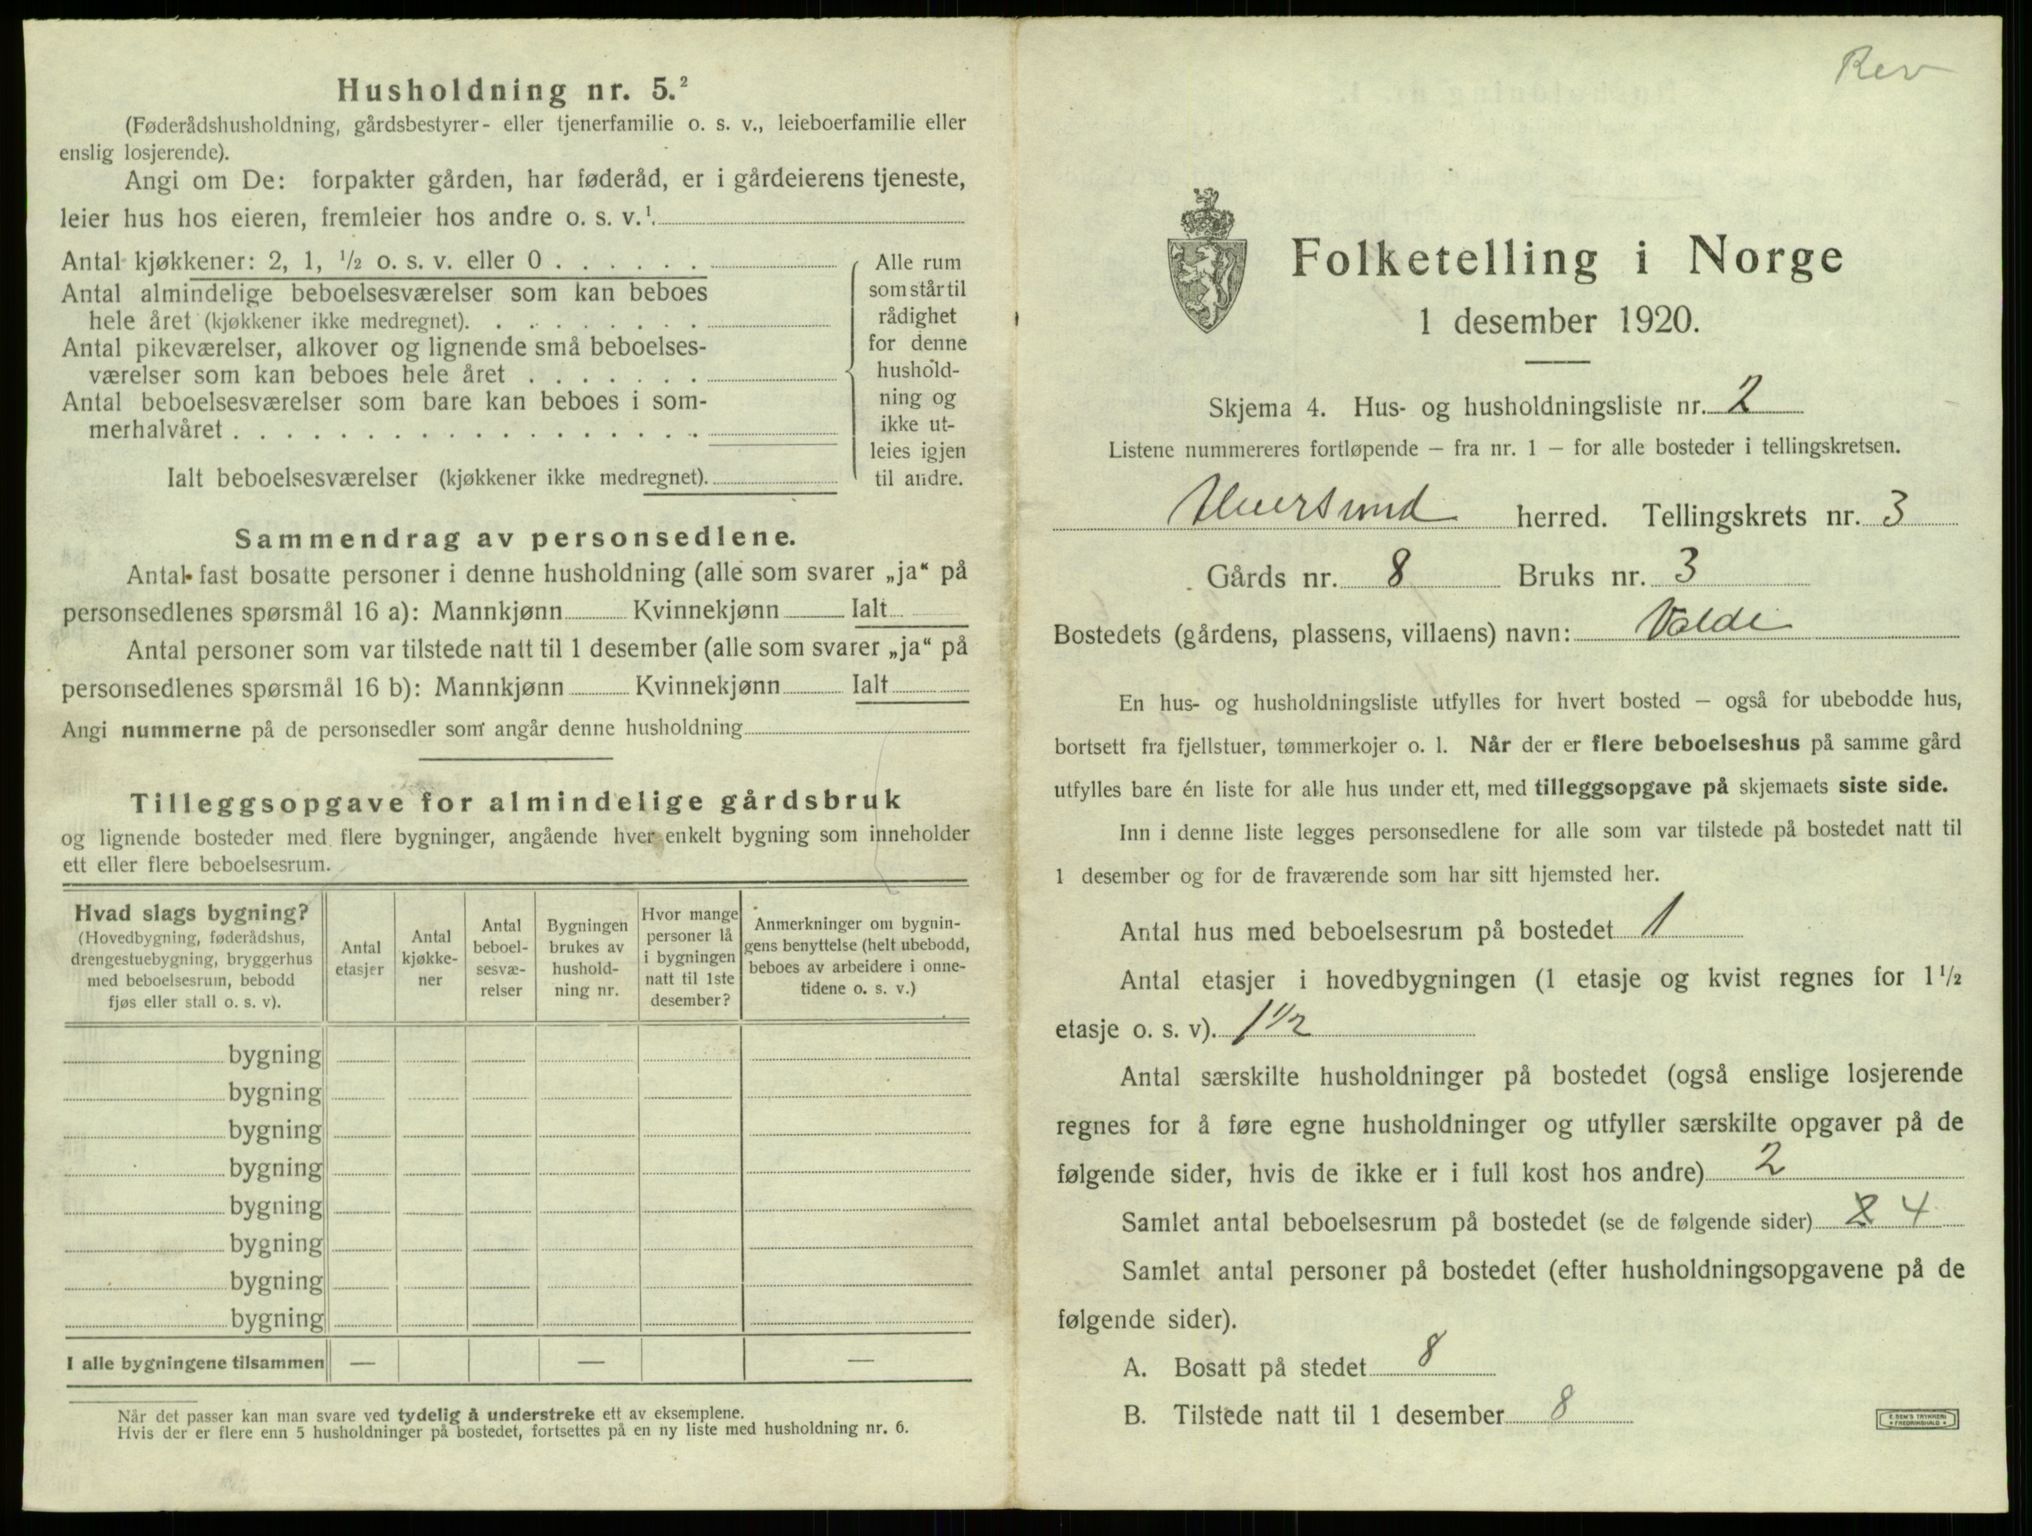 Husholdning nr. 5.²
(Føderådshusholdning, gårdsbestyrer- eller tjenerfamilie o. s. v., leieboerfamilie eller
enslig losjerende).
Angi om De: forpakter gården, har føderåd, er i gårdeierens tjeneste,
leier hus hos eieren, fremleier hos andre o. s. v.¹
Antal kjøkkener: 2, 1, ½ o. s. v. eller 0
Antal almindelige beboelsesværelser som kan beboes
hele året (kjøkkener ikke medregnet).
Antal pikeværelser, alkover og lignende små beboelses-
værelser som kan beboes hele året
Antal beboelsesværelser som bare kan beboes i som-
merhalvåret
Ialt beboelsesværelser (kjøkkener ikke medregnet).
Alle rum
som står til
rådighet
for denne
hushold-
ning og
ikke ut-
leies igjen
til andre.
Sammendrag av personsedlene.
Antal fast bosatte personer i denne husholdning (alle som svarer „ja“ på
personsedlenes spørsmål 16 a): Mannkjønn Kvinnekjønn Ialt
Antal personer som var tilstede natt til 1 desember (alle som svarer „ja“ på
personsedlenes spørsmål 16 b): Mannkjønn Kvinnekjønn Ialt
Angi nummerne på de personsedler som angår denne husholdning
Tilleggsopgave for almindelige gårdsbruk
og lignende bosteder med flere bygninger, angående hver enkelt bygning som inneholder
ett eller flere beboelsesrum.
Hvad slags bygning?
(Hovedbygning, føderådshus,
drengestuebygning, bryggerhus
med beboelsesrum, bebodd
fjøs eller stall o. s. v).
Antal
etasjer
Antal
kjøkke-
ner
Antal
beboel-
sesvæ-
relser
Bygningen
brukes av
hushold-
ning nr.
Hvor mange
personer lå
i bygningen
natt til 1ste
desember?
Anmerkninger om bygnin-
gens benyttelse (helt ubebodd,
beboes av arbeidere i onne-
tidene o. s. v.)
bygning
bygning
bygning
bygning
bygning
bygning
bygning
bygning
I alle bygningene tilsammen — — —
Når det passer kan man svare ved tydelig å understreke ett av eksemplene.
Hvis der er flere enn 5 husholdninger på bostedet, fortsettes på en ny liste med husholdning nr. 6.
Rev
Folketelling i Norge
1 desember 1920.
Skjema 4. Hus- og husholdningsliste nr. 2
Listene nummereres fortløpende – fra nr. 1 – for alle bosteder i tellingskretsen.
herred. Tellingskrets nr. 3
Gårds nr. 8 Bruks nr. 3
Bostedets (gårdens, plassens, villaens) navn: Valde
En hus- og husholdningsliste utfylles for hvert bosted – også for ubebodde hus,
bortsett fra fjellstuer, tømmerkojer o. l. Når der er flere beboelseshus på samme gård
utfylles bare én liste for alle hus under ett, med tilleggsopgave på skjemaets siste side.
Inn i denne liste legges personsedlene for alle som var tilstede på bostedet natt til
1 desember og for de fraværende som har sitt hjemsted her.
Antal hus med beboelsesrum på bostedet 1
Antal etasjer i hovedbygningen (1 etasje og kvist regnes for 1 ½
etasje o. s. v). 1½
Antal særskilte husholdninger på bostedet (også enslige losjerende
regnes for å føre egne husholdninger og utfyller særskilte opgaver på de
følgende sider, hvis de ikke er i full kost hos andre) 2
Samlet antal beboelsesrum på bostedet (se de følgende sider) 4
Samlet antal personer på bostedet (efter husholdningsopgavene på de
følgende sider).
A. Bosatt på stedet 8
B. Tilstede natt til 1 desember 8
E. SEM'S TRYKKERI
FREDRIKSHALD